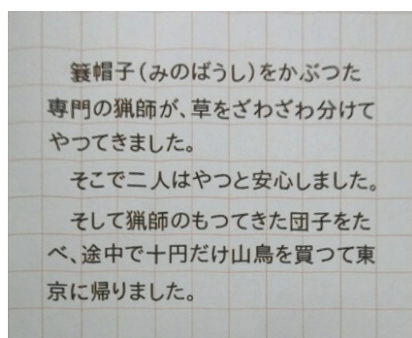 簑帽子(みのばうし)をかぶつた
専門の猟師が、草をざわざわ分けて
やつてきました。
そこで二人はやつと安心しました。
そして猟師のもつてきた団子をた
べ、途中で十円だけ山鳥を買つて東
京に帰りました。